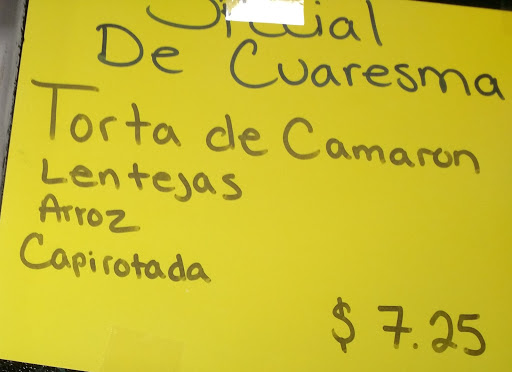 De Cuaresma
Torta de Camaron
Lentejas
Arroz
Capirotada
$ 7.25